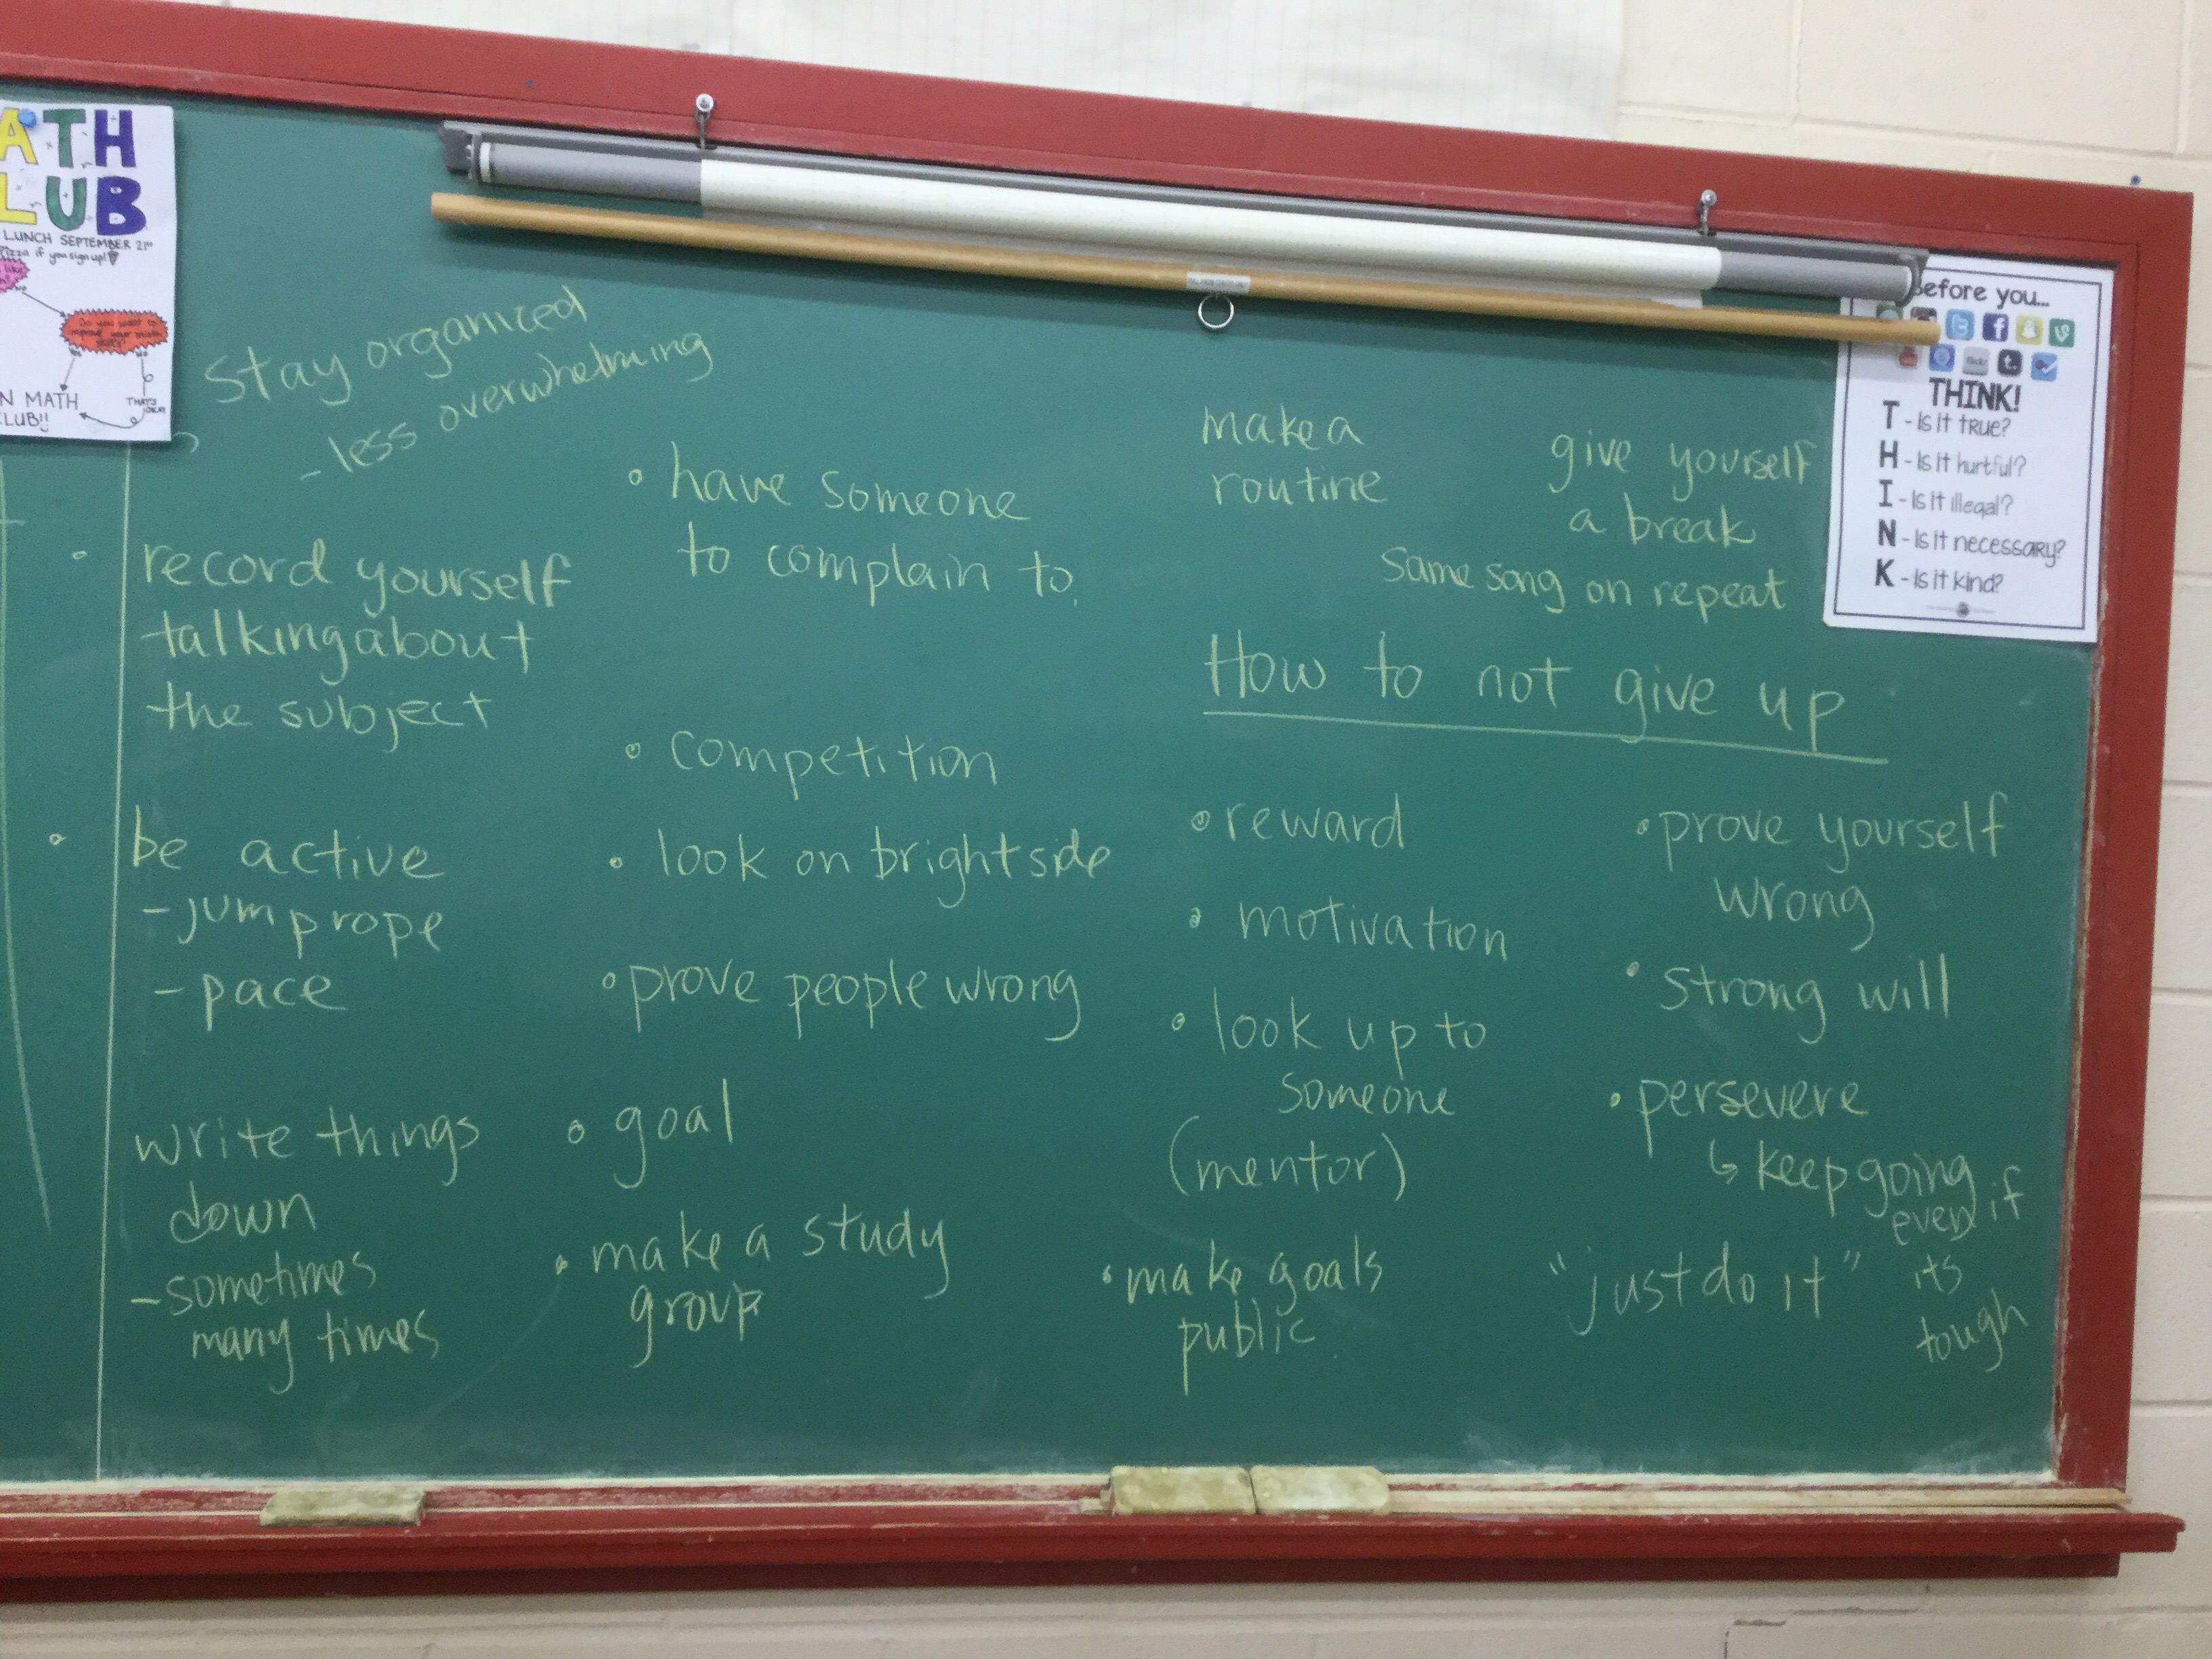 ATH
LUB
LUNCH SEPTEMBER 21st
Pizza if you sign up!
like
NO
Do you want to
improve your math
skills?
Yes
No
N MATH
CLUB!!
THAT'S
OKAY
Stay organized
- less overwhelming
• record yourself
talking about
the subject
• be active
- jump rope
- pace
write things
down
- sometimes
many times
• have someone
to complain to.
• competition
• look on bright side
• prove people wrong
• goal
• make a study
group
make a
routine
give yourself
a break
same song on repeat
How to not give up
• reward
• motivation
• look up to
someone
(mentor)
• make goals
public.
• prove yourself
wrong
• strong will
• persevere
↳ keep going
even if
its
tough
"just do it"
Before you...
flickr
THINK!
T - Is it true?
H - Is it hurtful?
I - Is it illegal?
N - Is it necessary?
K - Is it kind?